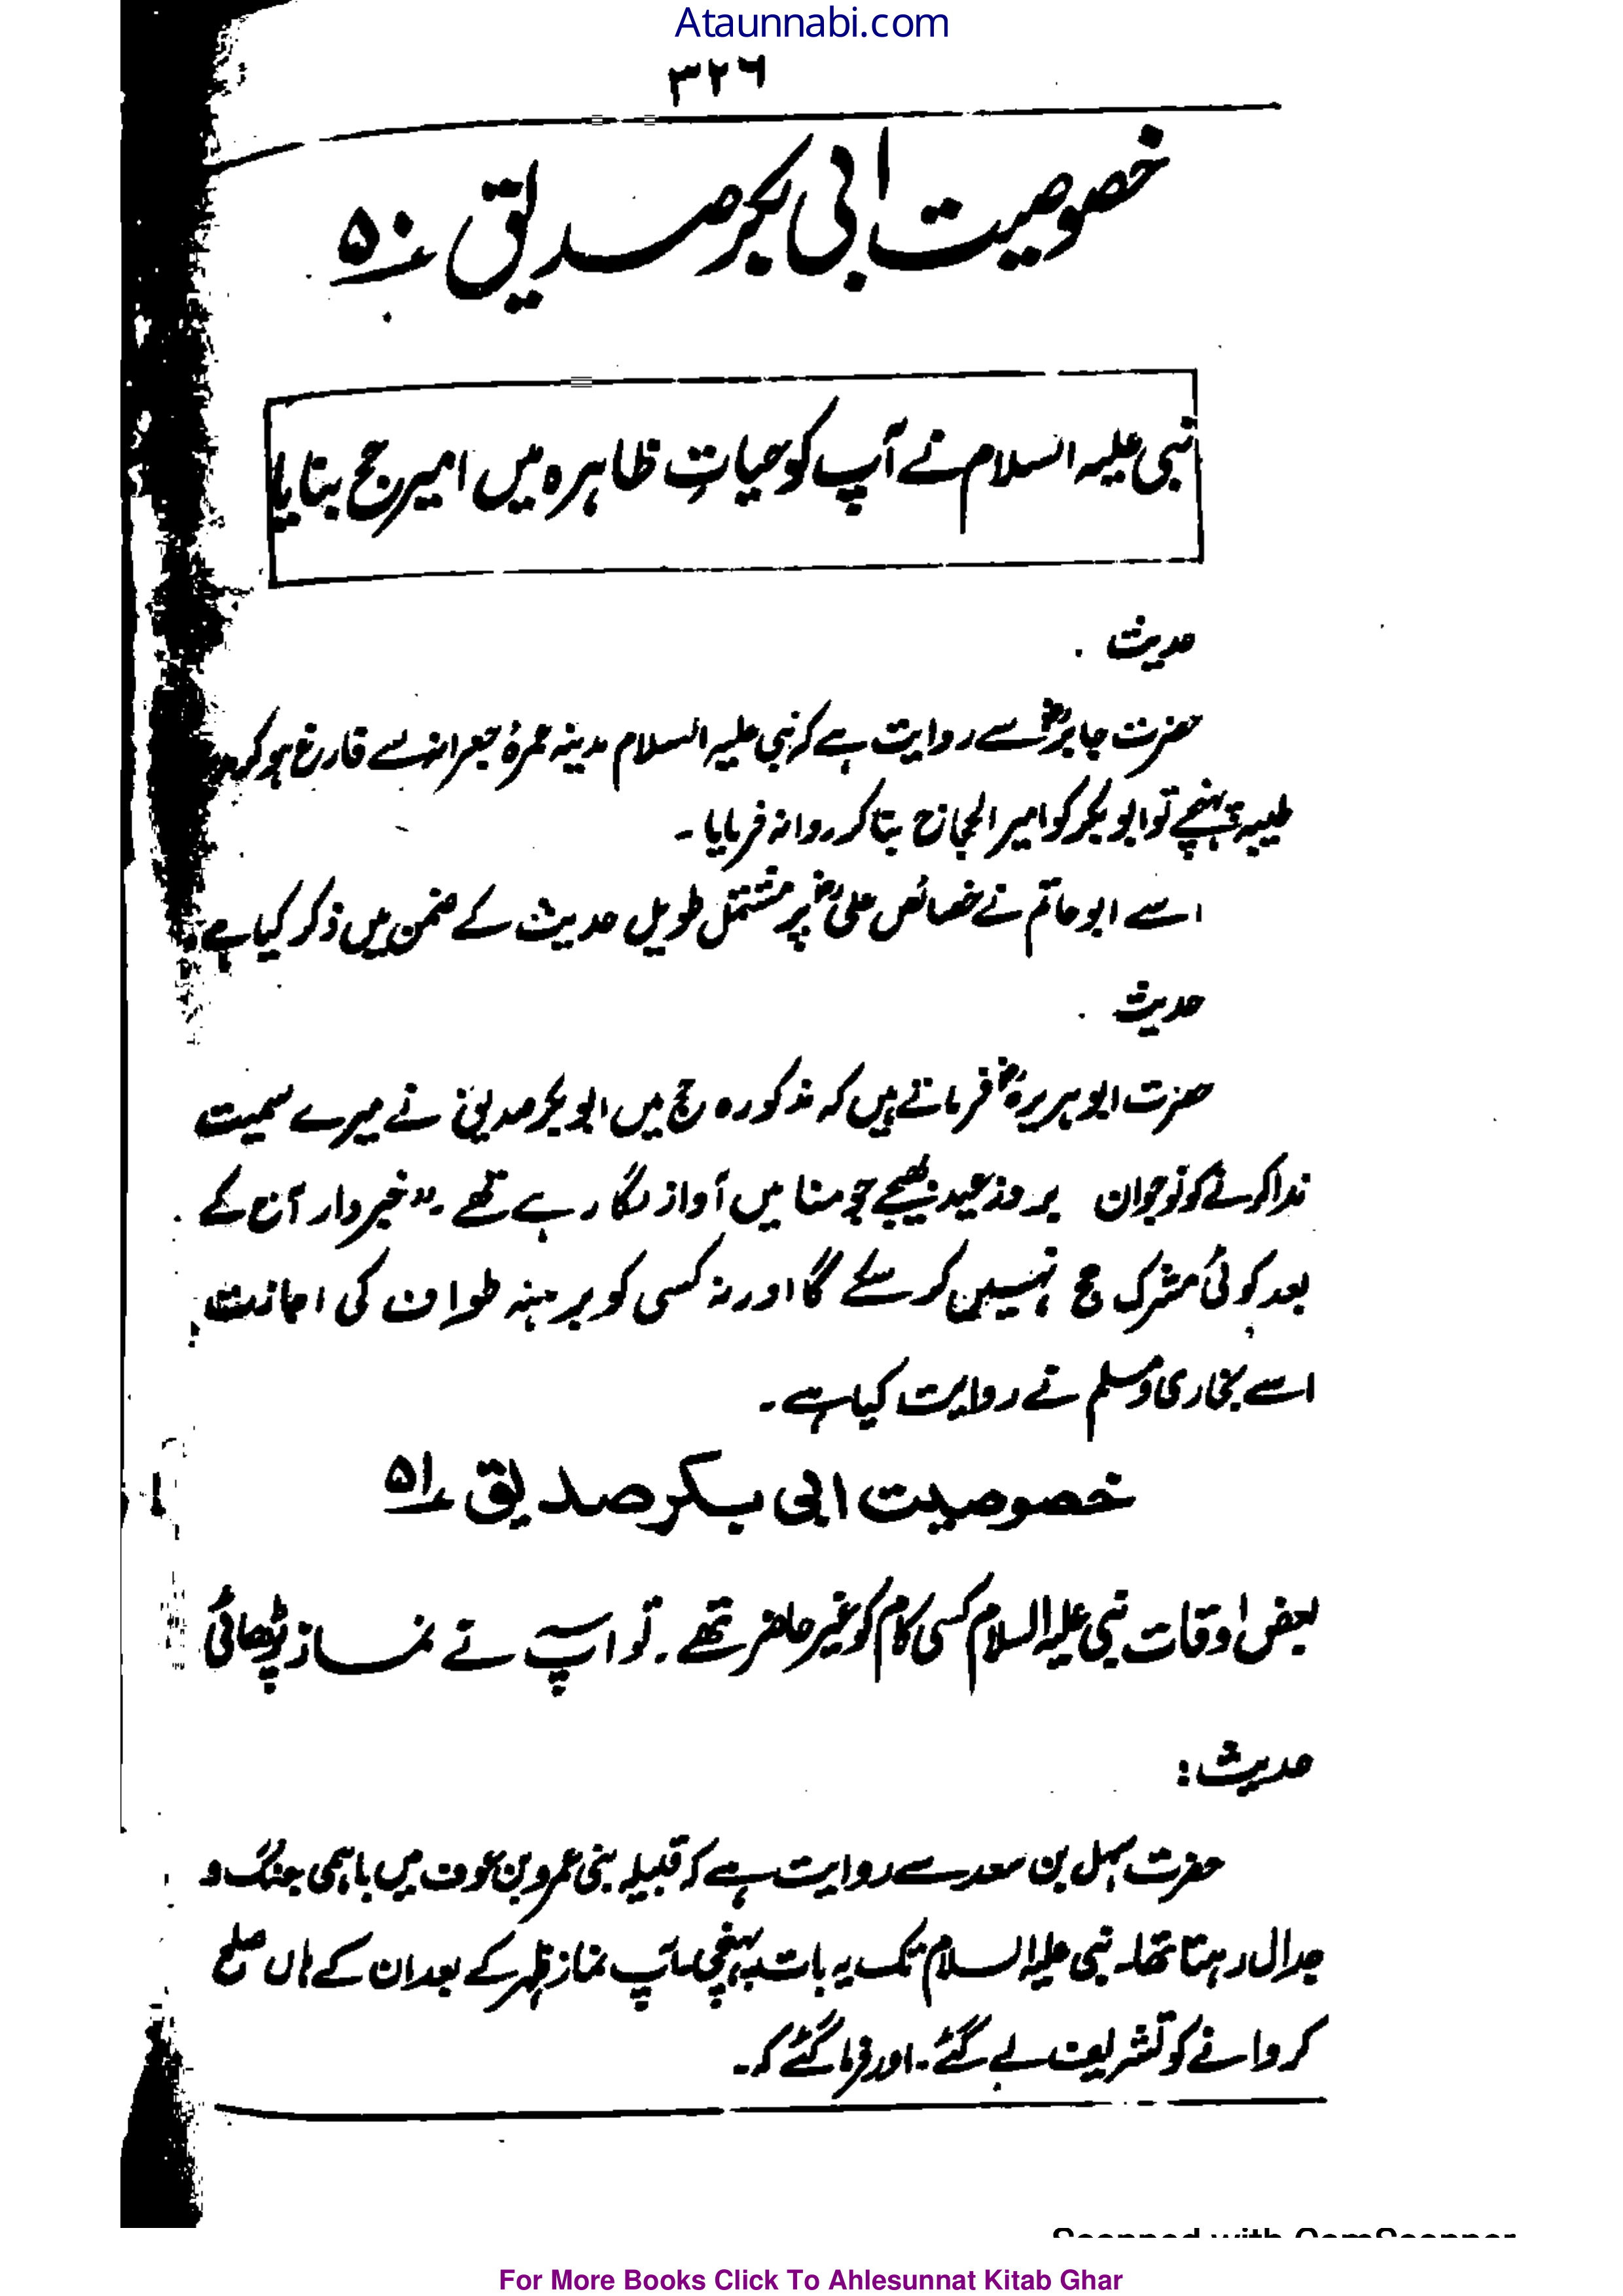 Ataunnabi.com
۳۲۶
خصوصیت ابی بکر صدیق ؍۵۰
نبی علیہ السلام نے آپ کو حیاتِ ظاہرہ میں امیر حج بنایا
حدیث ۔
حضرت جابرؓ سے روایت ہے کہ نبی علیہ السلام مدینہ عمرۂ جعرانہ سے فارغ ہو کر
طیبہ پہنچے تو ابو بکر کو امیر الحجاج بنا کر روانہ فرمایا ۔
اسے ابو حاتم نے خصائص علیؓ پر مشتمل طویل حدیث کے ضمن میں ذکر کیا ہے۔
حدیث ۔
حضرت ابو ہریرہؓ فرماتے ہیں کہ مذکورہ حج میں ابو بکر صدیق نے میرے سمیت
ندا کرنے کو نوجوان بروز عید بھیجے جو منا میں آواز لگا رہے تھے ۔ ”خبردار آج کے
بعد کوئی مشرک حج نہیں کر سکے گا اور نہ کسی کو برہنہ طواف کی اجازت
اسے بخاری و مسلم نے روایت کیا ہے ۔
خصوصیت ابی بکر صدیق ؍۵۱
بعض اوقات نبی علیہ السلام کسی کام کو غیر حاضر تھے ۔ تو آپ نے نماز پڑھائی
حدیث :
حضرت سہل بن سعد سے روایت ہے کہ قبیلہ بنی عمرو بن عوف میں باہمی جنگ و
جدال رہتا تھا۔ نبی علیہ السلام تک یہ بات پہنچی۔ آپ نماز ظہر کے بعد ان کے ہاں صلح
کروانے کو تشریف لے گئے ۔ اور فرما گئے کہ ۔
Scanned with CamScanner
For More Books Click To Ahlesunnat Kitab Ghar